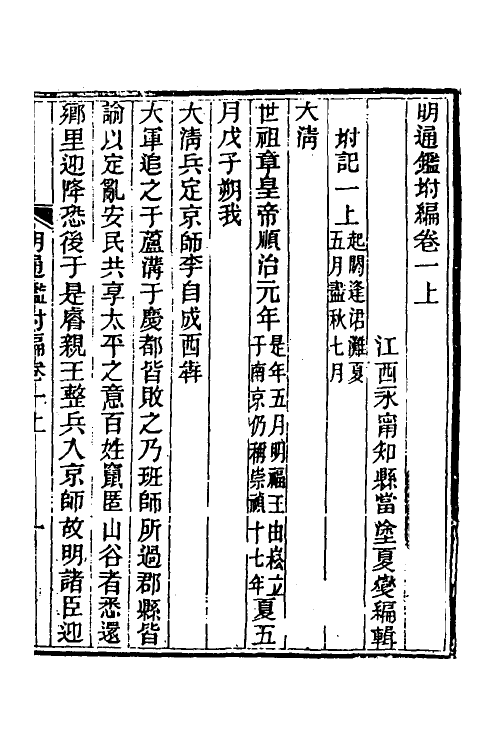 明通鑑坿編卷一上
江西永甯知縣當塗夏燮編輯
坿記一上起閼逢涒灘夏五月盡秋七月
大淸
世祖章皇帝順治元年是年五月明福王由崧立于南京仍稱崇禎十七年夏五
月戊子朔我
大淸兵定京師李自成西犇
大軍追之于蘆溝于慶都皆敗之乃班師所過郡縣皆
諭以定亂安民共享太平之意百姓竄匿山谷者悉還
鄉里迎降恐後于是睿親王整兵入京師故明諸臣迎
明通鑑坿編卷一上 一